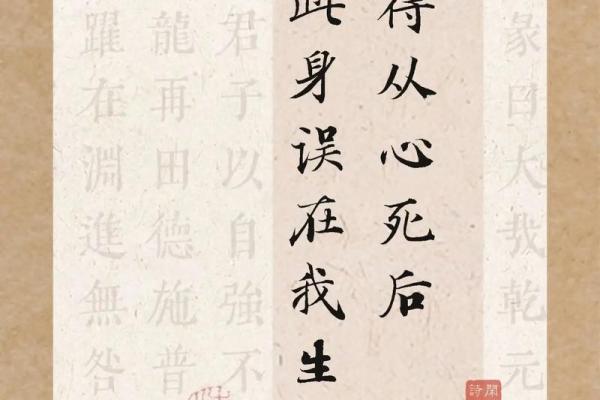 彖曰大我乾元
得从心死后
此身误在我生
君子以自強不
龍再田德施普
躍在淵進無咎
閑詩